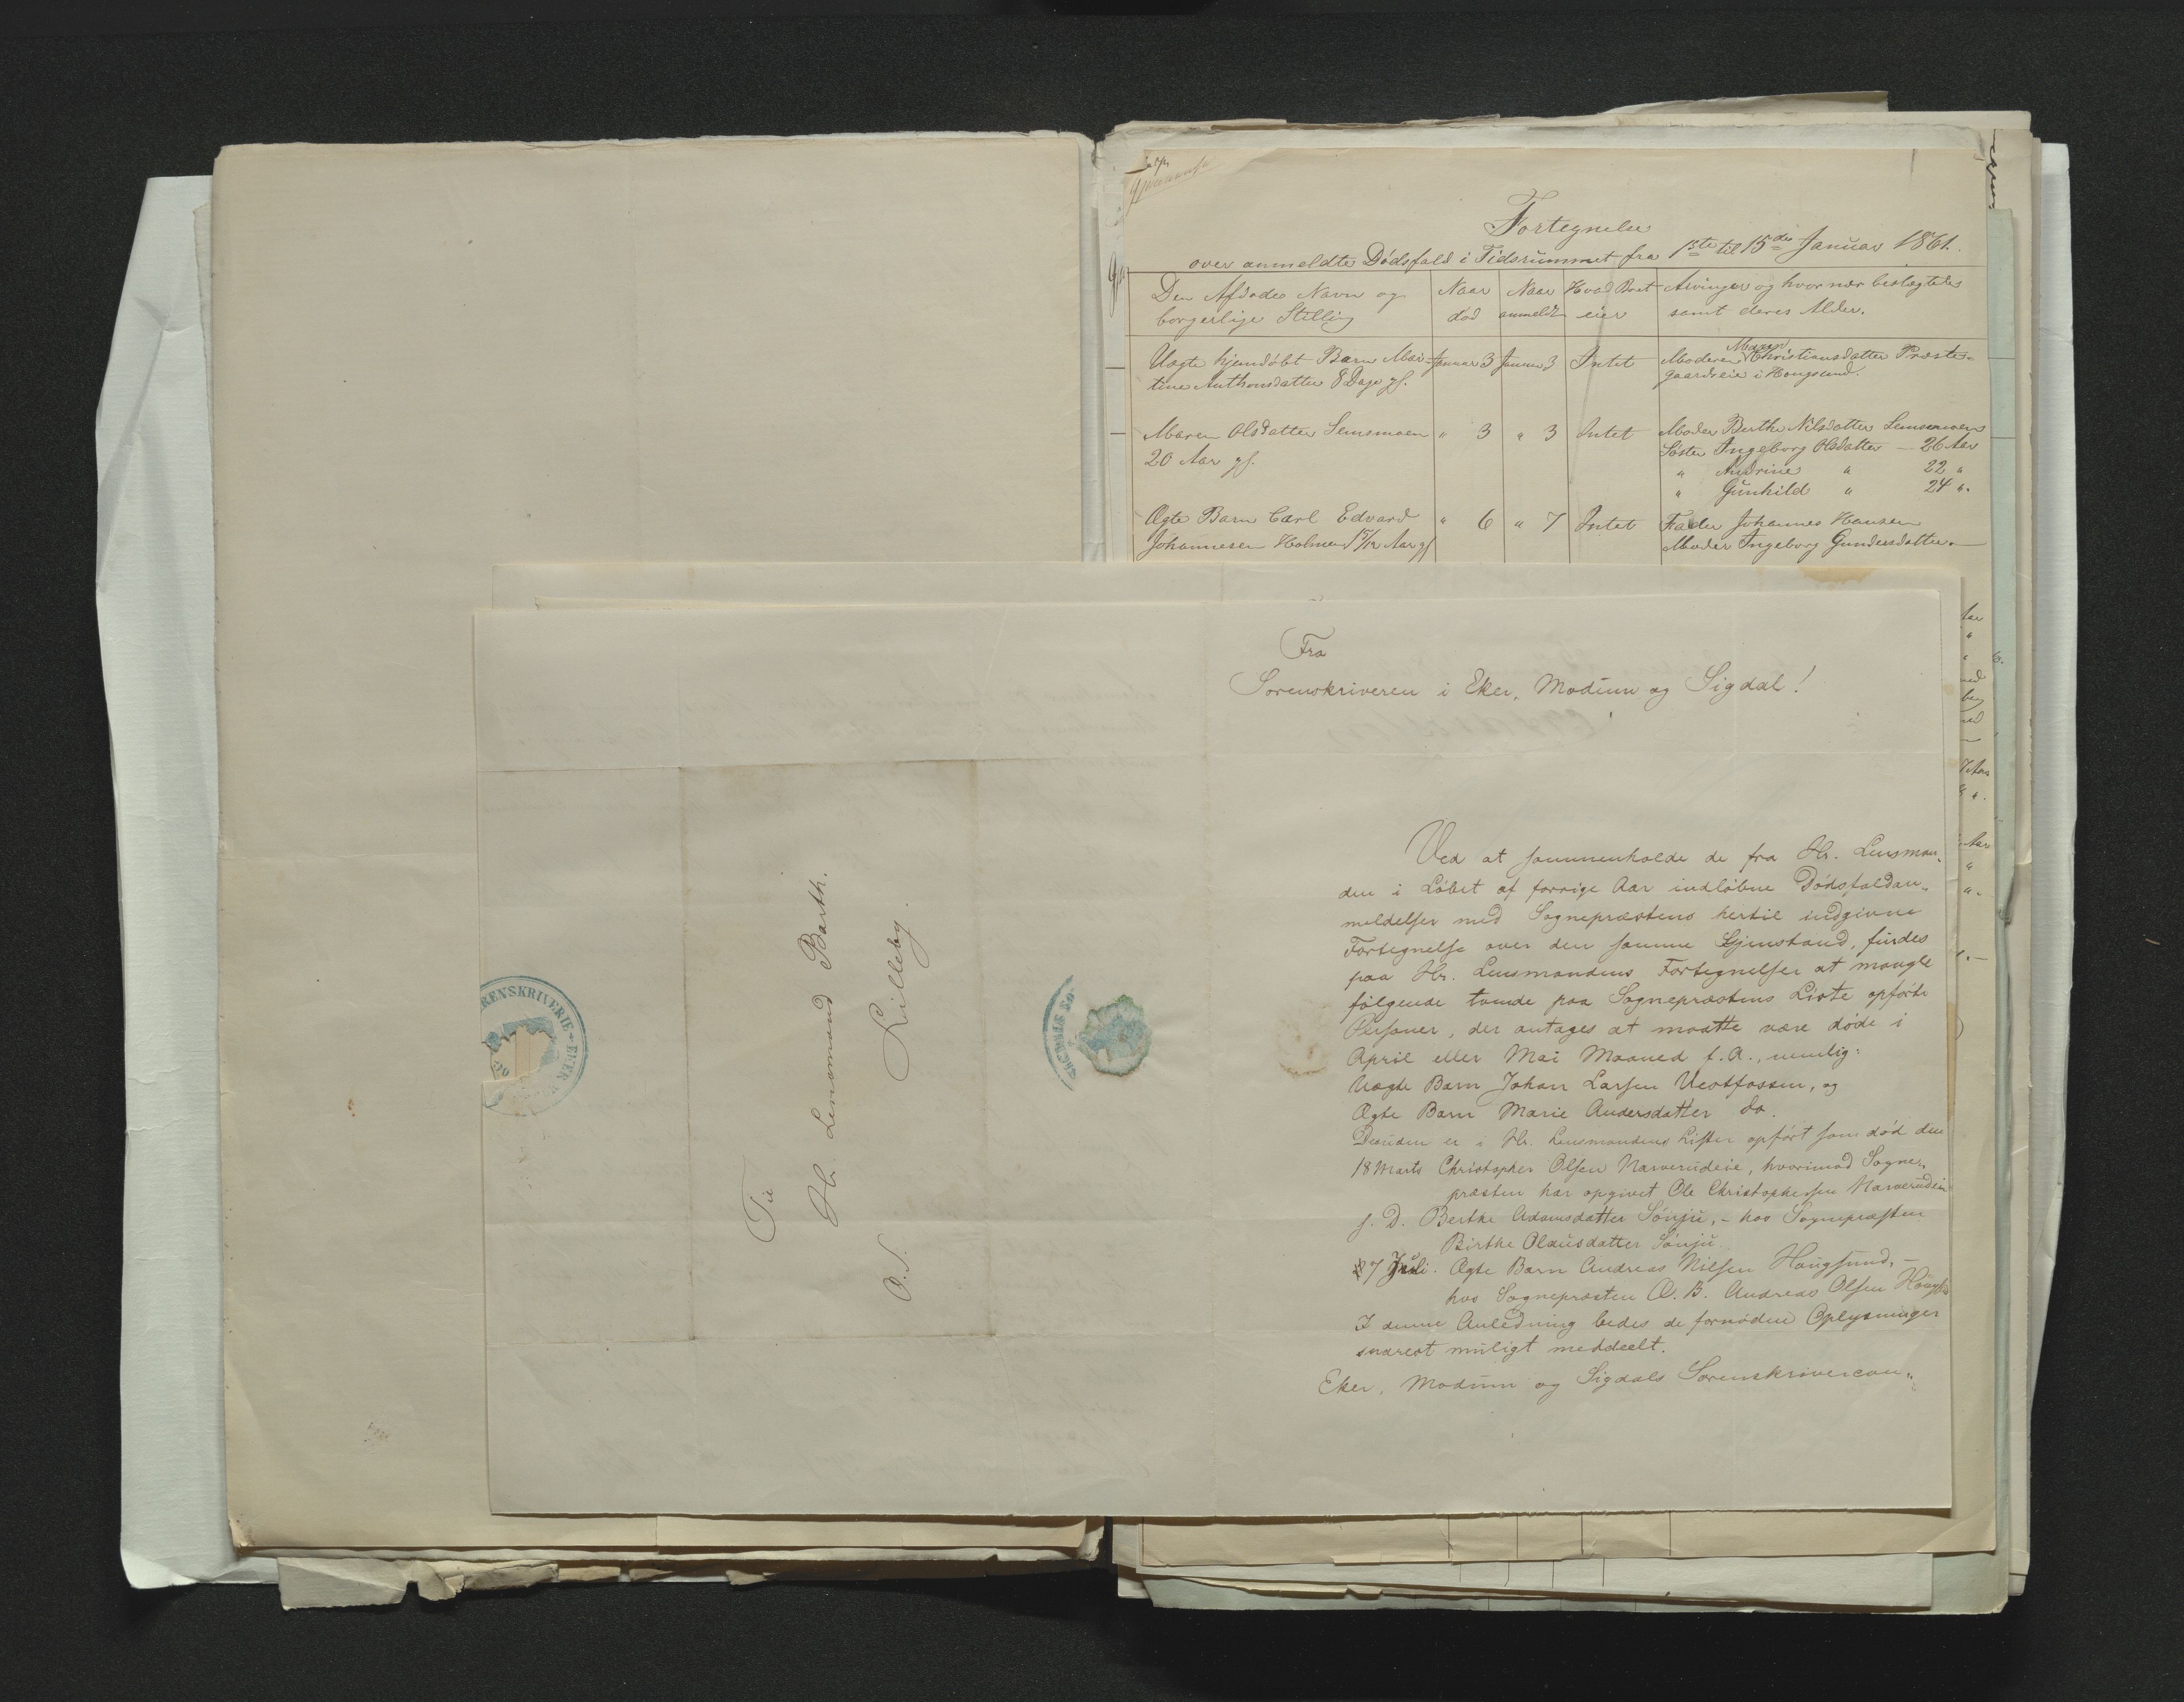 Fortegnelse
over anmeldte Dødsfald i Tidsrummet fra 1ste til 15de Januar 1861.
Den Afdødes Navn og borgerlige Stilling | Naar død | Naar anmeldt | Hvad Boet eier | Arvinger og hvor nær beslægtede samt deres Alder.
Uægte hjemdøbt Barn Mar- | Januar 3 | Januar 3 | Intet | Moderen Maren Christiansdatter Præste-
tine Anthonsdatter 8 Dage gl. | gaardseie i Hougsund.
Maren Olsdatter Semsmoen | " 3 | " 3 | Intet | Moder Berthe Nilsdatter Semsmoen
20 Aar gl. | Søster Ingeborg Olsdatter — 26 Aar
" Andrine " 22 "
" Gunhild " 24 ".
Ægte Barn Carl Edvard | " 6 | " 7 | Intet | Fader Johannes Hansen
Johannesen Holmen 1 5/12 Aar gl | Moder Ingeborg Gundersdatter.
Fra
Sorenskriveren i Eker, Modum og Sigdal!
Ved at sammenholde de fra Hr. Lensman-
den i Løbet af forrige Aar indløbne Dødsfaldan-
meldelser med Sognepræstens hertil indgivne
Fortegnelse over den samme Gjenstand, findes
paa Hr. Lensmandens Fortegnelser at mangle
følgende tvende paa Sognepræstens Liste opførte
Personer, der antages at maatte være døde i
April eller Mai Maaned f. A., nemlig:
Uægte Barn Johan Larsen Vestfossen, og
Ægte Barn Marie Andersdatter do.
Desuden er i Hr. Lensmandens Lister opført som død den
18 Marts Christopher Olsen Narverudeie, hvorimod Sogne-
præsten har opgivet Ole Christophersen Narverudeie
s. D. Berthe Adamsdatter Sønju, - hos Sognepræsten
Birthe Olausdatter Sønju
7 Juli. Ægte Barn Andreas Nilsen Hougsund, -
hos Sognepræsten Æ. B. Andreas Olsen Hougsd
I denne Anledning bedes de fornødne Oplysninger
snarest muligt meddeelt.
Eker, Modum og Sigdals Sorenskrivercon-
Til
Hr. Lensmand Barth.
O. S. Lilleby.
RENSKRIVERIE
EKER